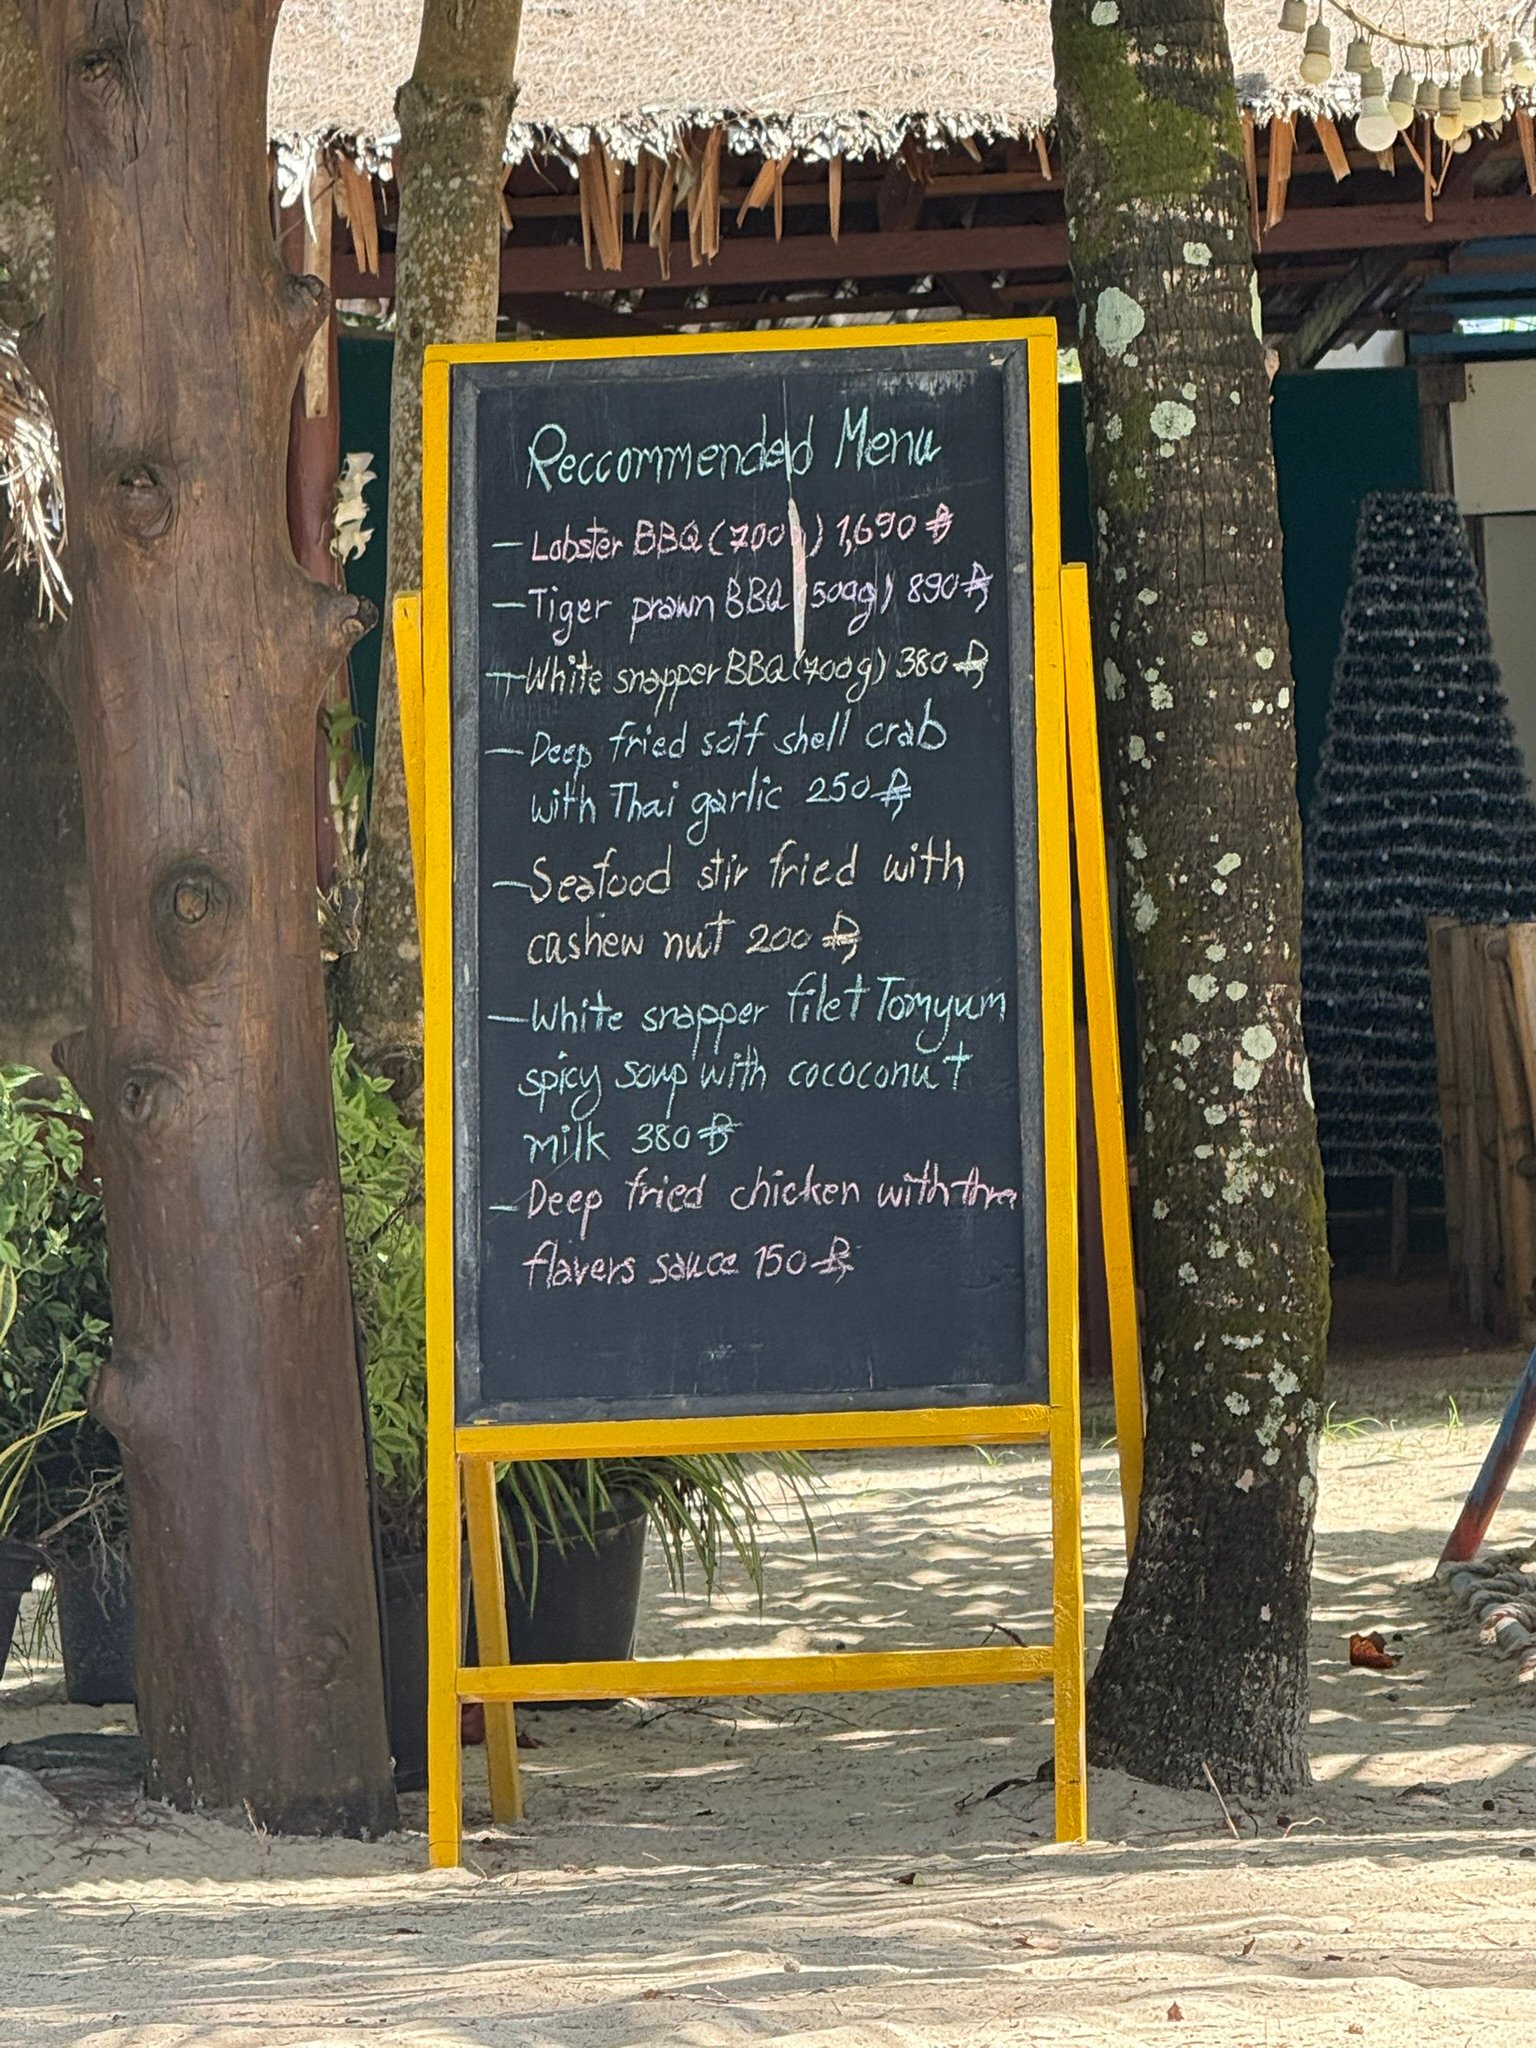 Reccommended Menu
- Lobster BBQ (700g) 1,690 ฿
- Tiger prawn BBQ (500g) 890 ฿
- White snapper BBQ (700g) 380 ฿
- Deep fried sotf shell crab
with Thai garlic 250 ฿
- Seafood stir fried with
cashew nut 200 ฿
- White snapper filet Tomyum
spicy soup with cococonut
milk 380 ฿
- Deep fried chicken with three
flavers sauce 150 ฿